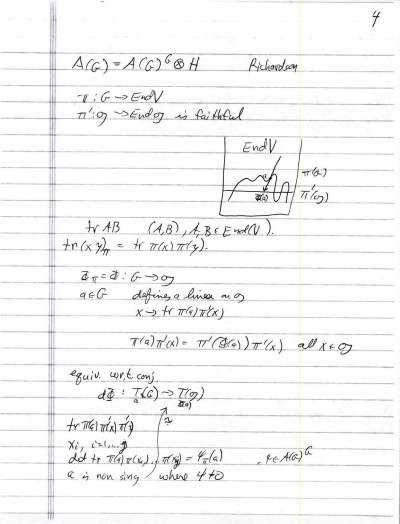 4
A(G) = A(G)^G ⊗ H Richardson
π : G → End V
π' : g → End g is faithful
End V
π(G)
π'(g)
Φ(a)
tr AB (A,B), A,B ∈ End(V).
tr(x y)_π = tr π(x)π'(y).
Φ_π = Φ : G → g
a ∈ G defines a linear on g
x → tr π(a)π'(x)
π(a)π'(x) = π'(Φ(a))π'(x) all x ∈ g
equiv. w.r.t. conj.
dΦ : T_a(G) → T_Φ(a)(g)
tr π(a)π'(x)π'(y)
x_i, i=1,...,n
det tr π(a)π(x_i)π(x_j) = Ψ_π(a) , Ψ ∈ A(G)^G
a is non sing where Ψ ≠ 0